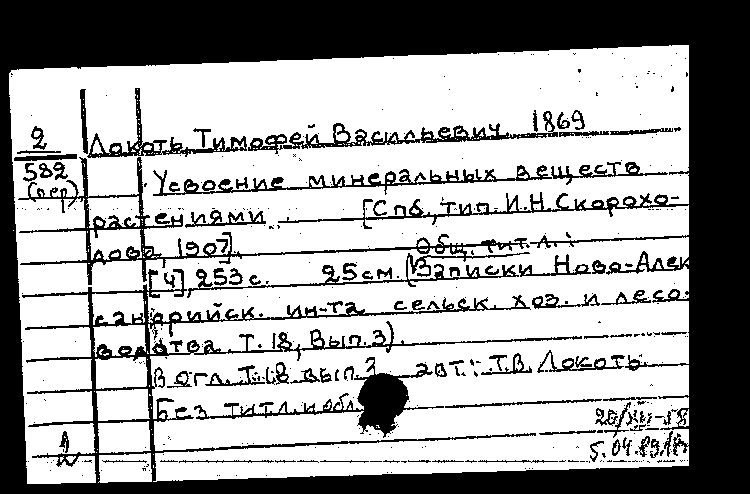 2
582
(пер).
Локоть, Тимофей Васильевич 1869
Усвоение минеральных веществ
растениями [Спб., тип. И.Н. Скорохо-
дова, 1907].
Общ. тит. л.:
[4], 253 с. 25 см. (Записки Ново-Алек
сандрийск. ин-та сельск. хоз. и лесо-
водства. Т. 18, Вып. 3).
В огл. Т. 18 вып. 3 авт.: Т.В. Локоть
Без титл. и обл.
2
5.04.89